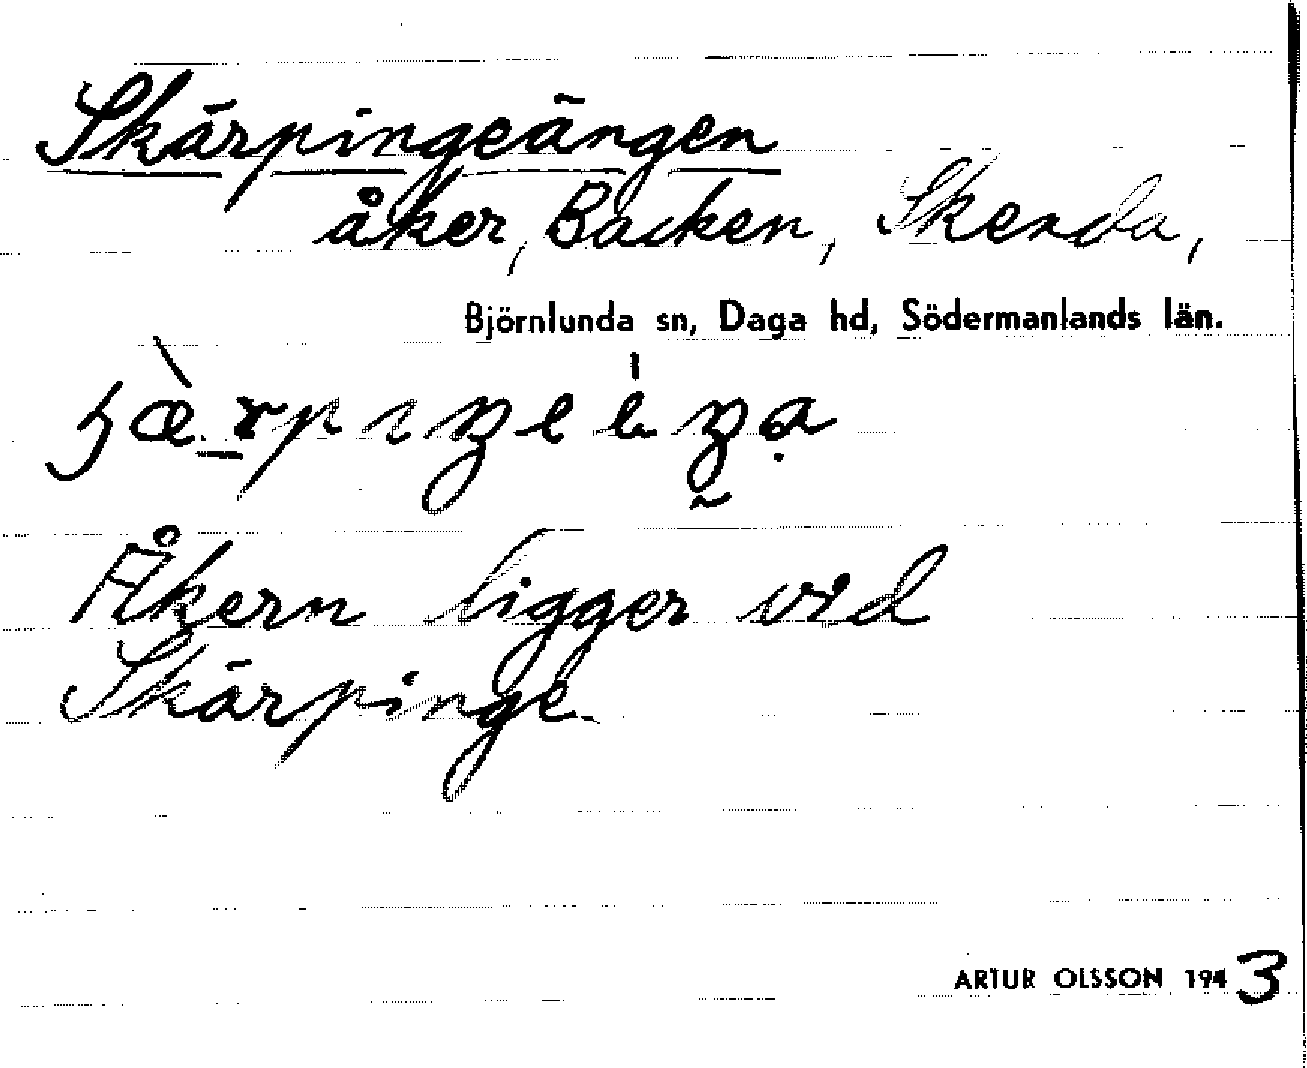 Skärpingeängen
åker, Backen, Skenda,
Björnlunda sn, Daga hd, Södermanlands län.
Åkern ligger vid
Skärpinge.
ARTUR OLSSON 1943